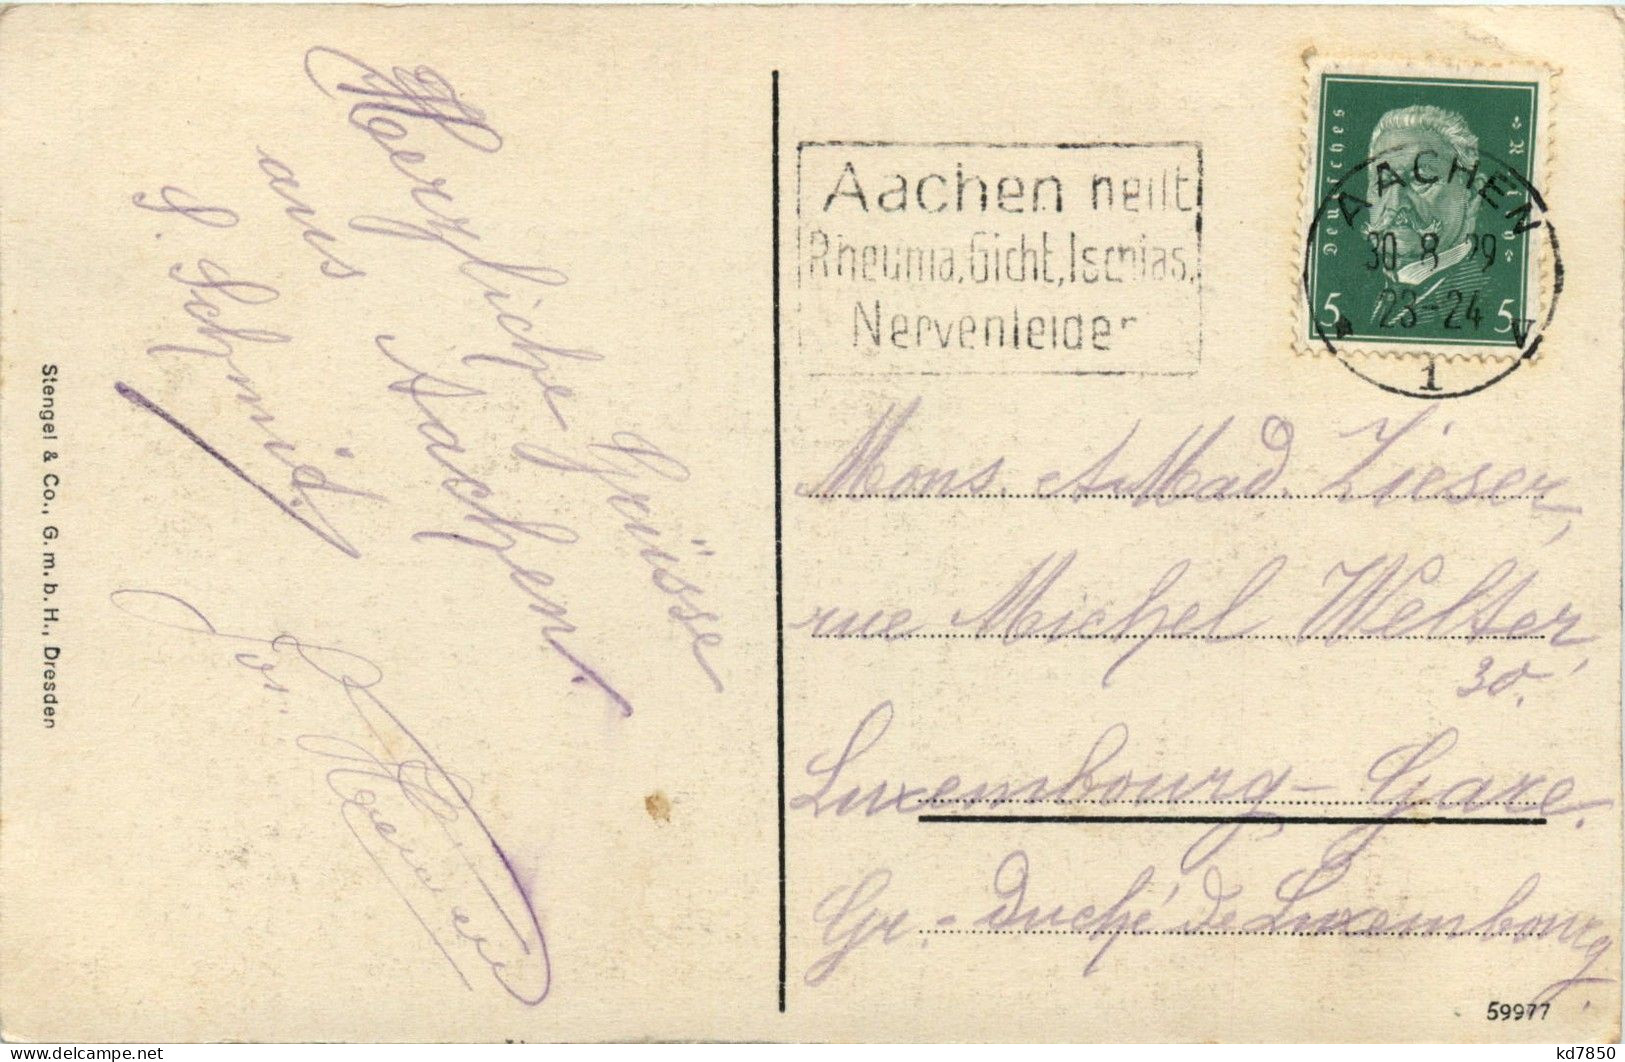 Herzliche Grüsse
aus Aachen.
S. Schmit.
Jos.
Stengel & Co., G. m. b. H., Dresden
Aachen heilt
Rheuma, Gicht, Ischias,
Nervenleiden
Deutsches Reich
5 5
AACHEN
30.8.29
23-24
* 1 V
Mons. & Mad. Zieser,
rue Michel Welter,
30.
Luxembourg-Gare.
Gr.-Duché de Luxembourg.
59977
kd7850